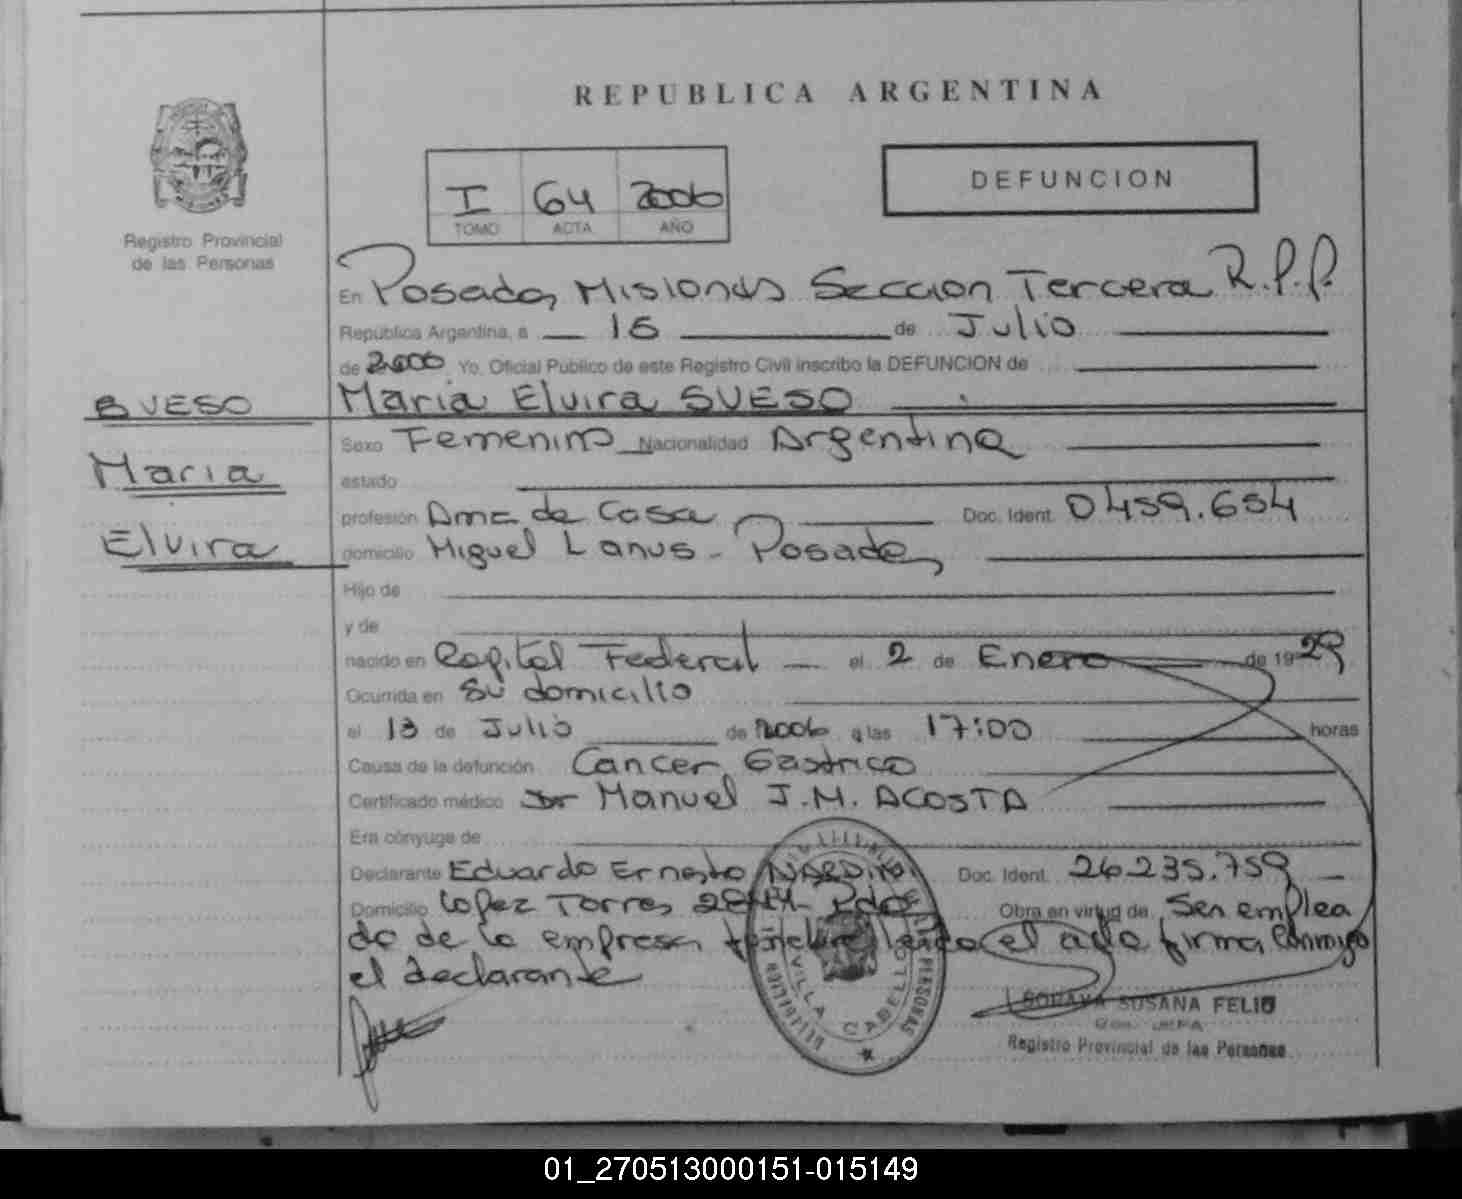 REPUBLICA ARGENTINA
I 64 2006
TOMO ACTA AÑO
DEFUNCION
Registro Provincial
de las Personas
En Posadas, Misiones Seccion Tercera R.P.P.
República Argentina, a 16 de Julio
de 2006 Yo, Oficial Público de este Registro Civil inscribo la DEFUNCION de
BUESO
Maria
Elvira
Maria Elvira SUESO
Sexo Femenino Nacionalidad Argentina
estado
profesión Ama de Casa Doc. Ident. 0459.654
domicilio Miguel Lanus - Posadas
Hijo de
y de
nacido en Capital Federal el 2 de Enero de 1929
Ocurrida en Su domicilio
el 13 de Julio de 2006 a las 17:00 horas
Causa de la defunción Cancer Gastrico
Certificado médico Dr Manuel J.M. ACOSTA
Era cónyuge de
Declarante Eduardo Ernesto Doc. Ident. 26.235.759
Domicilio Lopez Torres Pdas Obra en virtud de Ser emplea
do de la empresa el acta firma Conmigo
el declarante
VILLA CABELLO
PERSONAS
SUSANA FELIU
Registro Provincial de las Personas
01_270513000151-015149